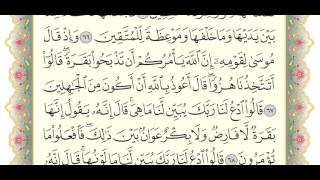 بَيْنَ يَدَيْهَا وَمَا خَلْفَهَا وَمَوْعِظَةً لِّلْمُتَّقِينَ ٦٦ وَإِذْ قَالَ
مُوسَىٰ لِقَوْمِهِ إِنَّ اللَّهَ يَأْمُرُكُمْ أَن تَذْبَحُوا بَقَرَةً قَالُوا
أَتَتَّخِذُنَا هُزُوًا قَالَ أَعُوذُ بِاللَّهِ أَنْ أَكُونَ مِنَ الْجَاهِلِينَ
٦٧ قَالُوا ادْعُ لَنَا رَبَّكَ يُبَيِّن لَّنَا مَا هِيَ قَالَ إِنَّهُ يَقُولُ إِنَّهَا
بَقَرَةٌ لَّا فَارِضٌ وَلَا بِكْرٌ عَوَانٌ بَيْنَ ذَٰلِكَ فَافْعَلُوا مَا
تُؤْمَرُونَ ٦٨ قَالُوا ادْعُ لَنَا رَبَّكَ يُبَيِّن لَّنَا مَا لَوْنُهَا قَالَ إِنَّهُ